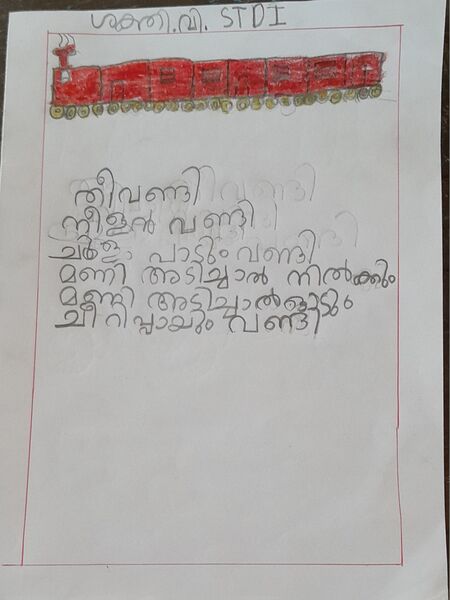 ശക്തി.വി. STD I
തീവണ്ടി
നീളൻ വണ്ടി
പാടും വണ്ടി
മണി അടിച്ചാൽ നിൽക്കും
മണി അടിച്ചാൽ ഓടും
ചീറിപ്പായും വണ്ടി